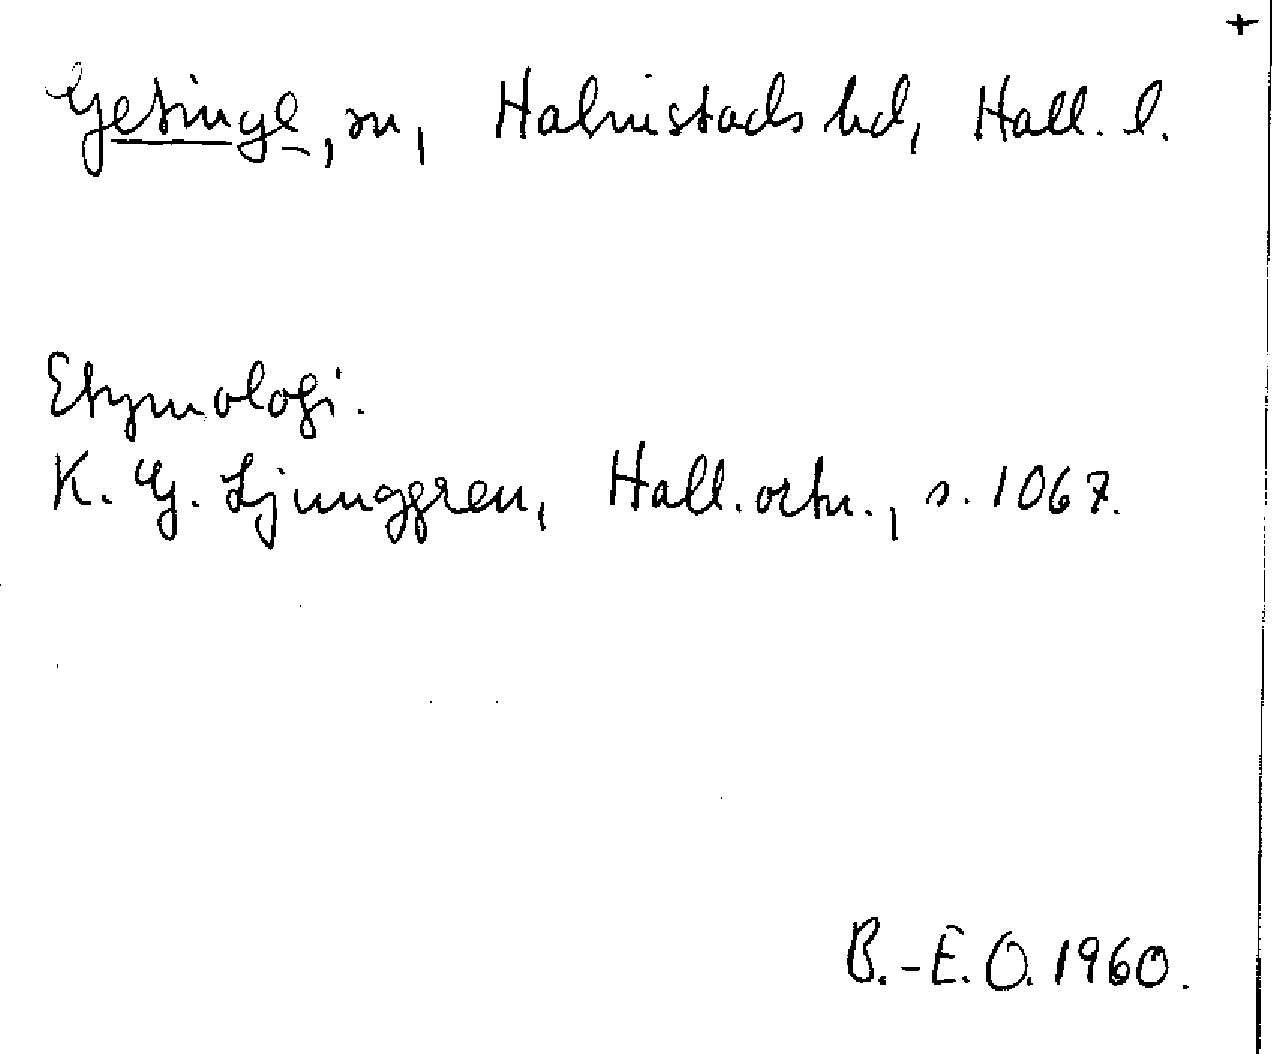 +
Getinge, sn, Halmstads hd, Hall. l.
Etymologi.
K. G. Ljunggren, Hall. ortn., s. 1067.
B.-E. O. 1960.